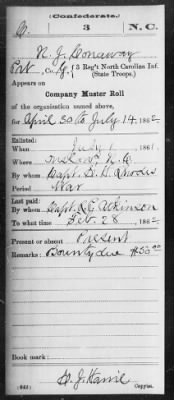 (Confederate.)
C. 3 N.C.
N. J. Conaway
Pvt, Co. G, 3 Reg't North Carolina Inf.
(State Troops.)
Appears on
Company Muster Roll
of the organization named above,
for April 30 to July 14, 1862
Enlisted:
When July 1, 1861
Where Onslow N.C.
By whom Capt. Rhodes
Period War
Last paid:
By whom Capt. R.C. Atkinson
To what time Feb. 28, 1862
Present or absent Present
Remarks: Bounty due $50.00
Book mark:
(642) Copyist.